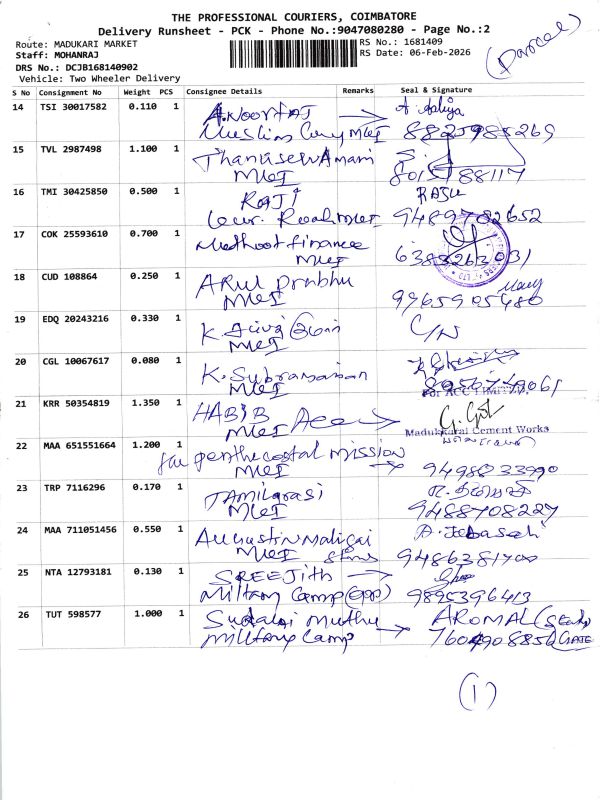 THE PROFESSIONAL COURIERS, COIMBATORE
Delivery Runsheet - PCK - Phone No.:9047080280 - Page No.:2
(Parcel)
Route: MADUKARI MARKET
RS No.: 1681409
Staff: MOHANRAJ
RS Date: 06-Feb-2026
DRS No.: DCJB168140902
Vehicle: Two Wheeler Delivery
S No Consignment No Weight PCS Consignee Details Remarks Seal & Signature
14 TSI 30017582 0.110 1 A. NOORTAJ
Muslim MKT
15 TVL 2987498 1.100 1
MKT
16 TMI 30425850 0.500 1 RAJI RAJU
MKT 9489782652
17 COK 25593610 0.700 1 Muthoot finance
MKT
18 CUD 108864 0.250 1 ARul Prabhu
MKT 9965905480
19 EDQ 20243216 0.330 1 K. C/N
MKT
20 CGL 10067617 0.080 1 K. Subramanian
MKT
21 KRR 50354819 1.350 1 HABIB
MKT ACC
For ACC LIMITED,
Madukkarai Cement Works
22 MAA 651551664 1.200 1 penthecostal mission
MKT 9498033990
23 TRP 7116296 0.170 1 TAmilarasi
MKT 9488708227
24 MAA 711051456 0.550 1 Augustin Maligai A. Jebasali
MKT Stores 9486381700
25 NTA 12793181 0.130 1 SREEJith
Military Camp (opp) 9895396413
26 TUT 598577 1.000 1 Sudalai Muthu AROMAL
Military Camp GATE
(1)